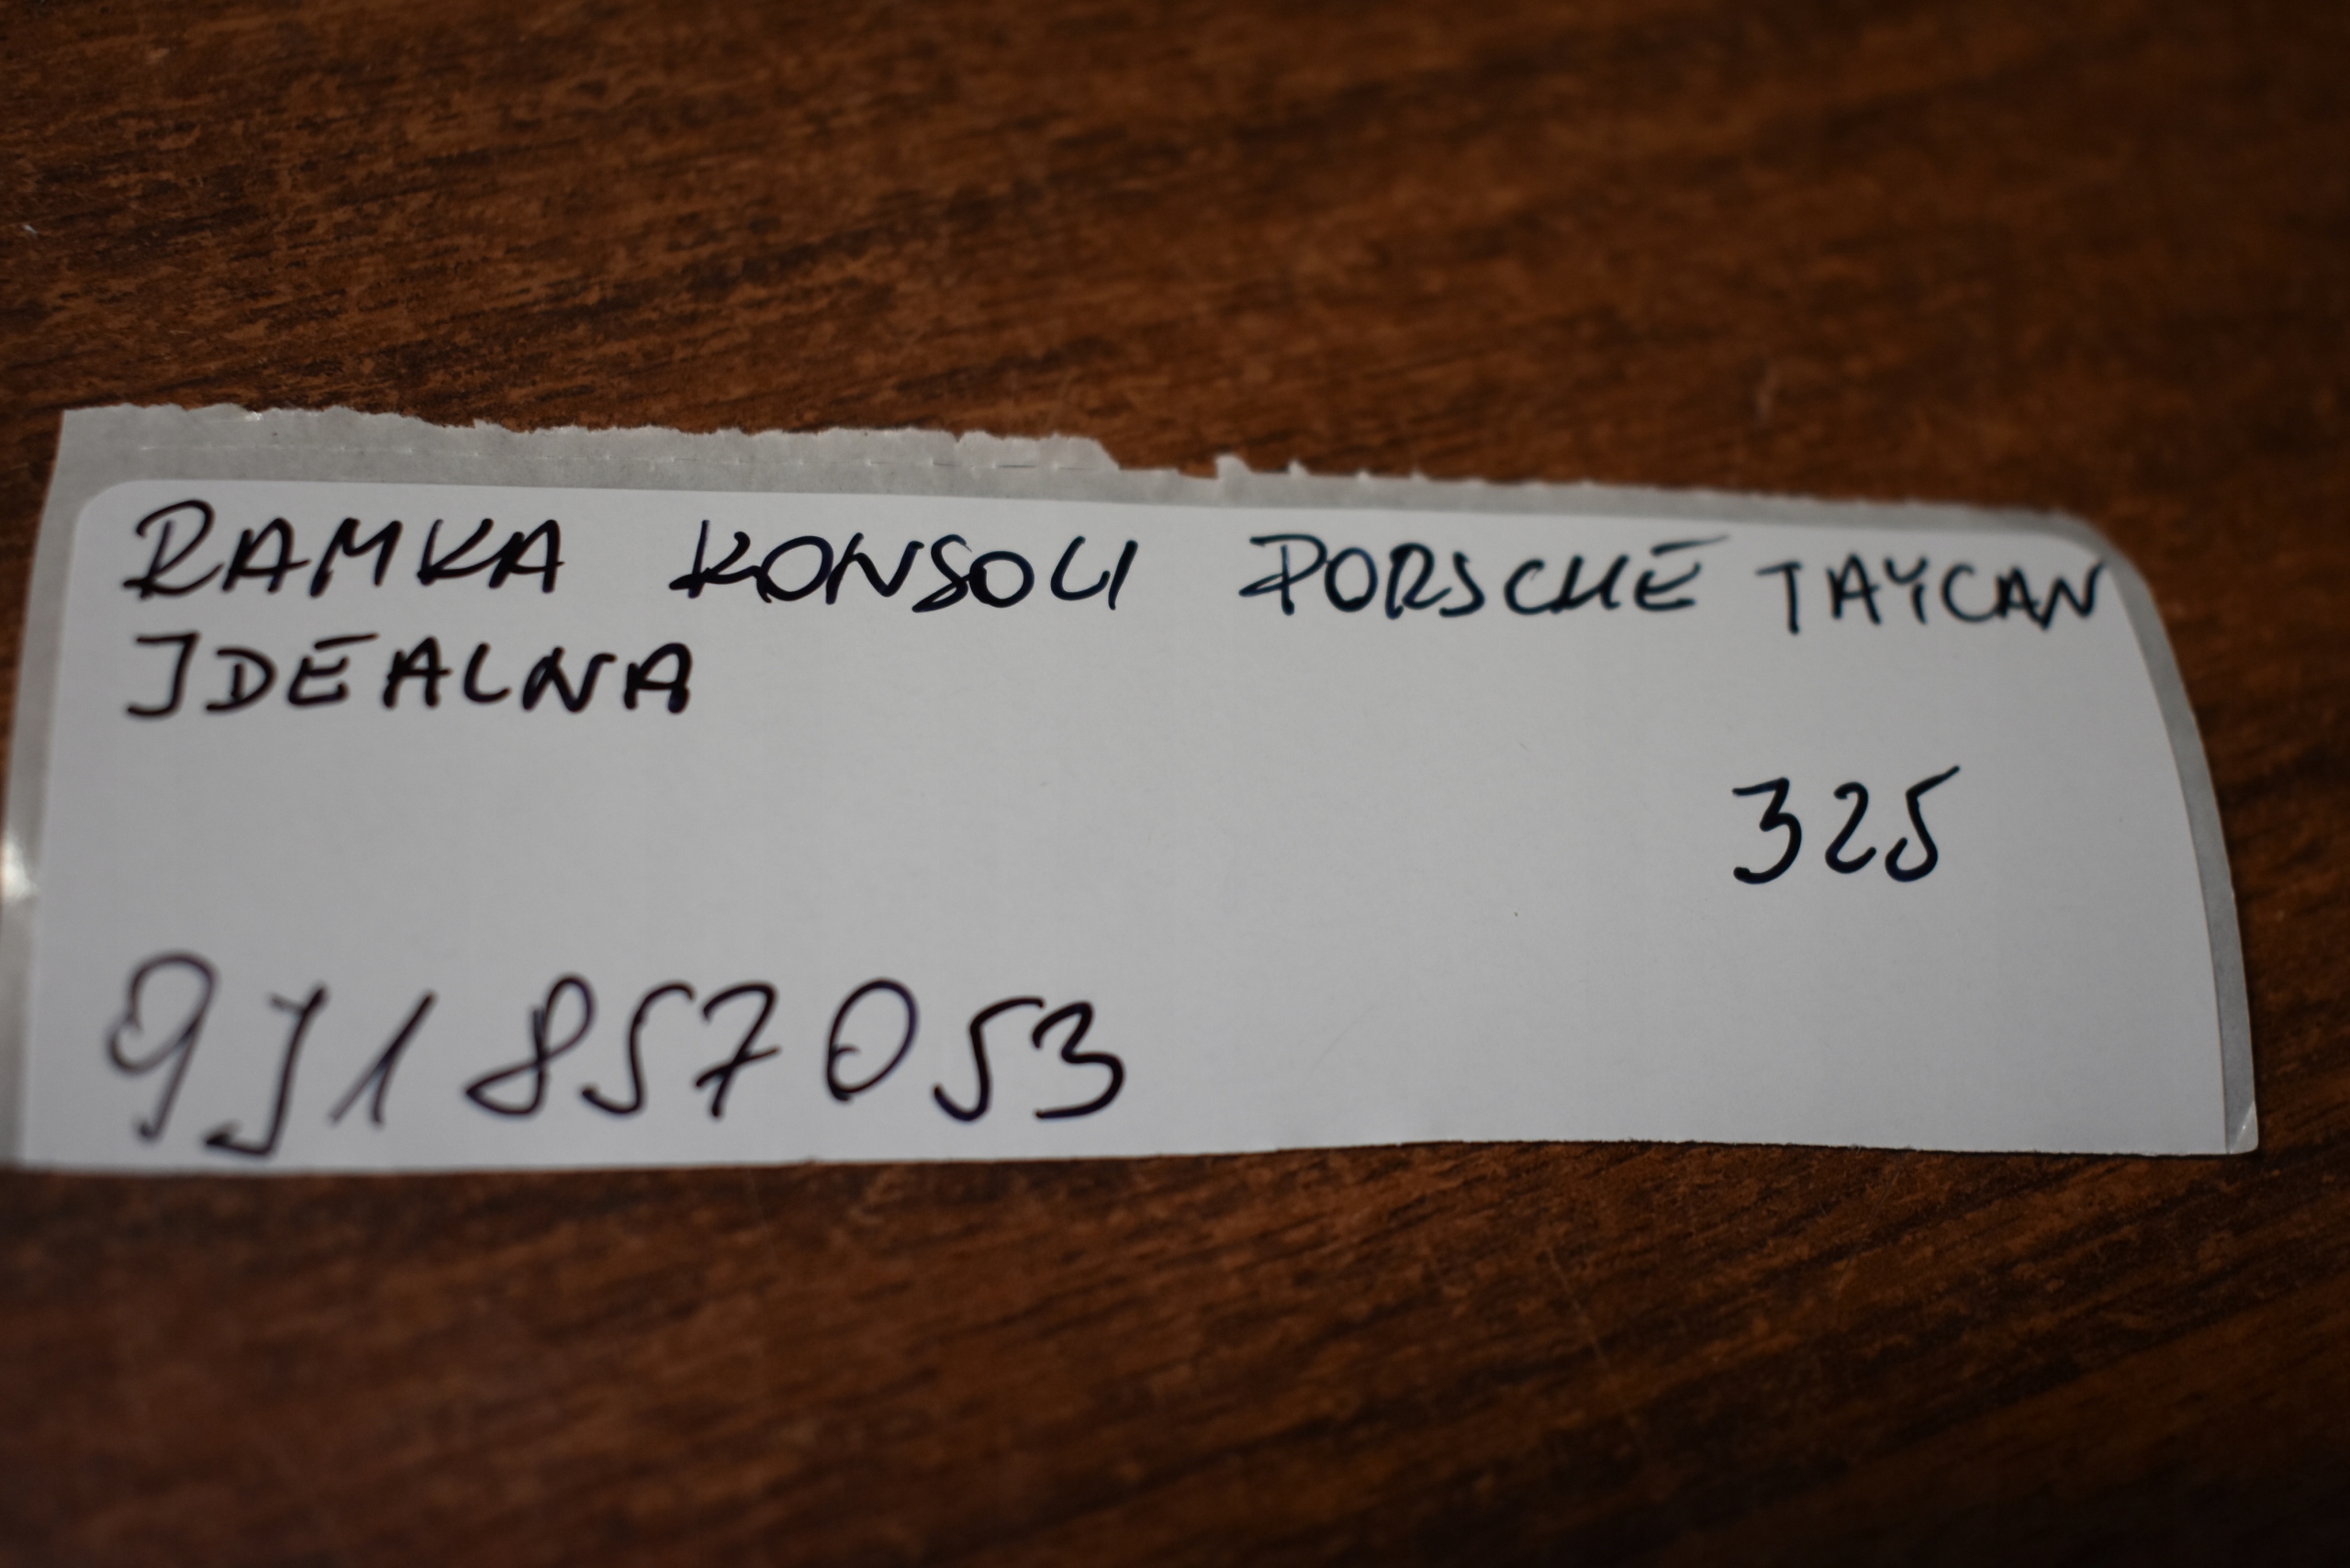 RAMKA KONSOLI PORSCHE TAYCAN
IDEALNA
325
9J1 857 053